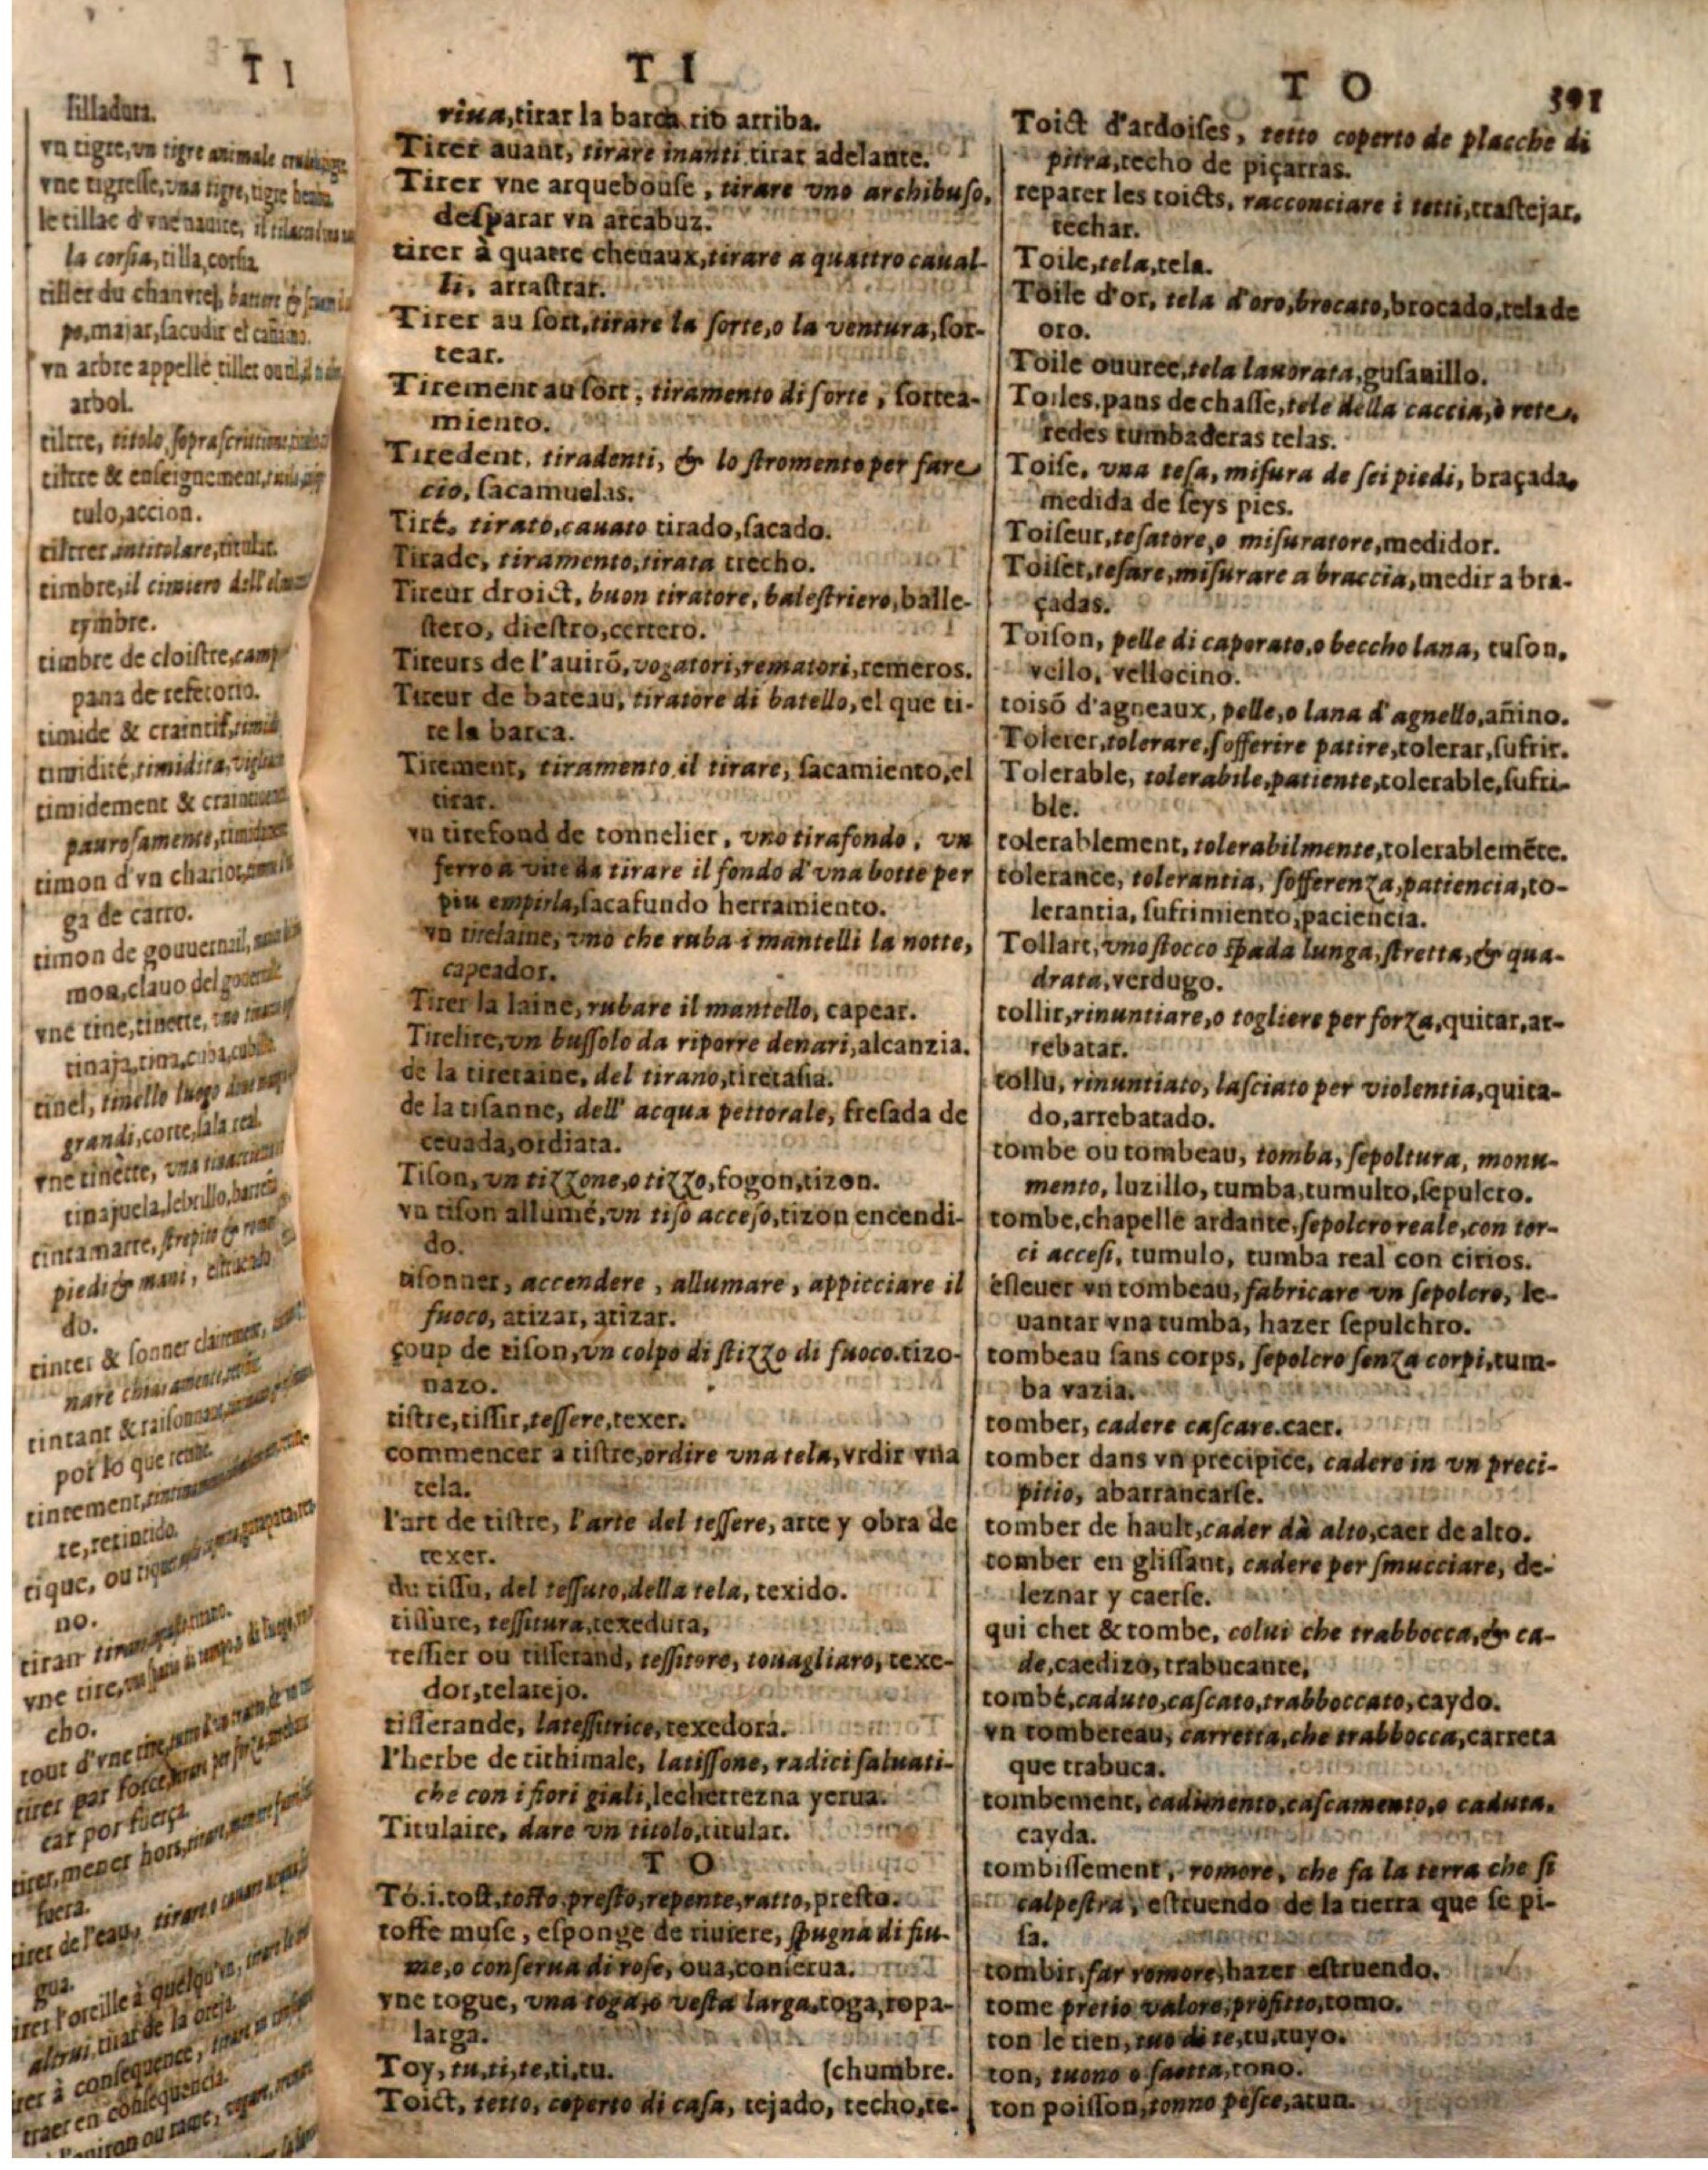 T I
ſilladura.
vn tigre, vn tigre animale
vne tigreſſe, vna tigre, tigre
le tillac d'vne nauire, il
la corſia, tilla, corſia
tiller du chanvre, battere &
po, majar, ſacudir el cañamo.
vn arbre appellé tillet ou
arbol.
tiltre, titolo, ſopraſcrittione
tiltre & enſeignement,
tulo, accion.
tiltrer intitolare, titular.
timbre, il cimiero dell'
tymbre.
timbre de cloiſtre, camp
pana de refetorio.
timide & craintif, timid
timidité, timidita,
timidement &
pauroſamente,
timon d'vn chariot,
ga de carro.
timon de gouuernail,
mon, clauo del
vne tine, tinette, vno
tinaja, tina, cuba,
tinel, tinello luogo
grandi, corte, ſala real.
vne tinette, vna
tinajuela, lebrillo,
tintamarre, ſtrepito &
piedi & mani,
do.
tinter & ſonner
nare chiaramente,
tintant & raiſonnant,
por lo que
tintement,
te, retintido.
tique, ou
no.
tiran
vne tire,
cho.
tout d'vne tire,
tirer par force,
car por fuerça
tirer, mener hors,
fuera.
tirer de l'eau, tirare
gua.
tirer l'oreille à quelqu'vn,
altrui, tirar de la oreja.
tirer à conſequence,
traer en conſequencia.
T I
riua, tirar la barca rio arriba.
Tirer auant, tirare inanti tirar adelante.
Tirer vne arquebouſe, tirare vno archibuſo,
deſparar vn arcabuz.
tirer à quatre cheuaux, tirare a quattro caual-
li, arraſtrar.
Tirer au ſort, tirare la ſorte, o la ventura, ſor-
tear.
Tirement au ſort, tiramento di ſorte, ſortea-
miento.
Tiredent, tiradenti, & lo ſtromento per fare
cio, ſacamuelas.
Tiré, tirato, cauato tirado, ſacado.
Tirade, tiramento, tirata trecho.
Tireur droict, buon tiratore, baleſtriero, balle-
ſtero, dieſtro, certero.
Tireurs de l'auirō, vogatori, rematori, remeros.
Tireur de bateau, tiratore di batello, el que ti-
re la barca.
Tirement, tiramento il tirare, ſacamiento, el
tirar.
vn tirefond de tonnelier, vno tirafondo, vn
ferro a vite da tirare il fondo d'vna botte per
piu empirla, ſacafundo herramiento.
vn tirelaine, vno che ruba i mantelli la notte,
capeador.
Tirer la laine, rubare il mantello, capear.
Tirelire, vn buſſolo da riporre denari, alcanzia.
de la tiretaine, del tirano, tiretaña.
de la tiſanne, dell' acqua pettorale, freſada de
ceuada, ordiata.
Tiſon, vn tizzone, o tizzo, fogon, tizon.
vn tiſon allumé, vn tiſo acceſo, tizon encendi-
do.
tiſonner, accendere, allumare, appicciare il
fuoco, atizar, atizar.
coup de tiſon, vn colpo di ſtizzo di fuoco. tizo-
nazo.
tiſtre, tiſſir, teſſere, texer.
commencer a tiſtre, ordire vna tela, vrdir vna
tela.
l'art de tiſtre, l'arte del teſſere, arte y obra de
texer.
du tiſſu, del teſſuto, della tela, texido.
tiſſure, teſſitura, texedura,
teſſier ou tiſſerand, teſſitore, touagliaro, texe-
dor, telarejo.
tiſſerande, la teſſitrice, texedora.
l'herbe de tithimale, latiſſone, radici ſaluati-
che con i fiori giali, lecherrezna yerua.
Titulaire, dare vn titolo, titular.
T O
To. i. toſt, toſto preſto, repente, ratto, preſto.
toffe muſe, eſponge de riuiere, ſpugna di fiu-
me, o conſerua di roſe, oua, conſerua.
vne togue, vna toga, o veſta larga, toga, ropa-
larga.
Toy, tu, ti, te, ti, tu. (chumbre.
Toict, tetto, coperto di caſa, tejado, techo, te-
T O 591
Toict d'ardoiſes, tetto coperto de placche di
pitra, techo de piçarras.
reparer les toicts, racconciare i tetti, traſtejar,
techar.
Toile, tela, tela.
Toile d'or, tela d'oro, brocato, brocado, tela de
oro.
Toile ouuree, tela lauorata, guſanillo.
Toiles, pans de chaſſe, tele della caccia, ò rete,
redes tumbaderas telas.
Toiſe, vna teſa, miſura de ſei piedi, braçada,
medida de ſeys pies.
Toiſeur, teſatore, o miſuratore, medidor.
Toiſer, teſare, miſurare a braccia, medir a bra-
çadas.
Toiſon, pelle di caporato, o beccho lana, tuſon,
vello, vellocino.
toiſō d'agneaux, pelle, o lana d'agnello, añino.
Tolerer, tolerare, ſofferire patire, tolerar, ſufrir.
Tolerable, tolerabile, patiente, tolerable, ſufri-
ble.
tolerablement, tolerabilmente, tolerablemēte.
tolerance, tolerantia, ſofferenza, patiencia, to-
lerantia, ſufrimiento, paciencia.
Tollart, vno ſtocco ſpada lunga, ſtretta, & qua-
drata, verdugo.
tollir, rinuntiare, o togliere per forza, quitar, ar-
rebatar.
tollu, rinuntiato, laſciato per violentia, quita-
do, arrebatado.
tombe ou tombeau, tomba, ſepoltura, monu-
mento, luzillo, tumba, tumulto, ſepulcro.
tombe, chapelle ardante, ſepolcro reale, con tor-
ci acceſi, tumulo, tumba real con cirios.
eſleuer vn tombeau, fabricare vn ſepolcro, le-
uantar vna tumba, hazer ſepulchro.
tombeau ſans corps, ſepolcro ſenza corpi, tum-
ba vazia.
tomber, cadere caſcare. caer.
tomber dans vn precipice, cadere in vn preci-
pitio, abarrancarſe.
tomber de hault, cader dà alto, caer de alto.
tomber en gliſſant, cadere per ſmucciare, de-
leznar y caerſe.
qui chet & tombe, colui che trabbocca, & ca-
de, caedizo, trabucante,
tombé, caduto, caſcato, trabboccato, caydo.
vn tombereau, carretta, che trabbocca, carreta
que trabuca.
tombement, cadimento, caſcamento, o caduta,
cayda.
tombiſſement, romore, che fa la terra che ſi
calpeſtra, eſtruendo de la tierra que ſe pi-
ſa.
tombir, far romore, hazer eſtruendo.
tome pretio valore, profitto, tomo.
ton le tien, tuo di te, tu, tuyo.
ton, tuono o ſaetta, tono.
ton poiſſon, tonno peſce, atun.